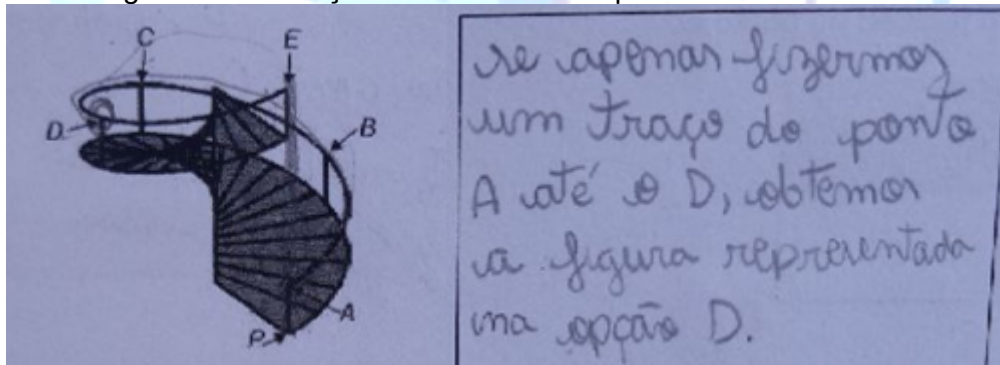 C
E
D
B
A
P
se apenas fizermos
um traço do ponto
A até o D, obtemos
a figura representada
na opção D.